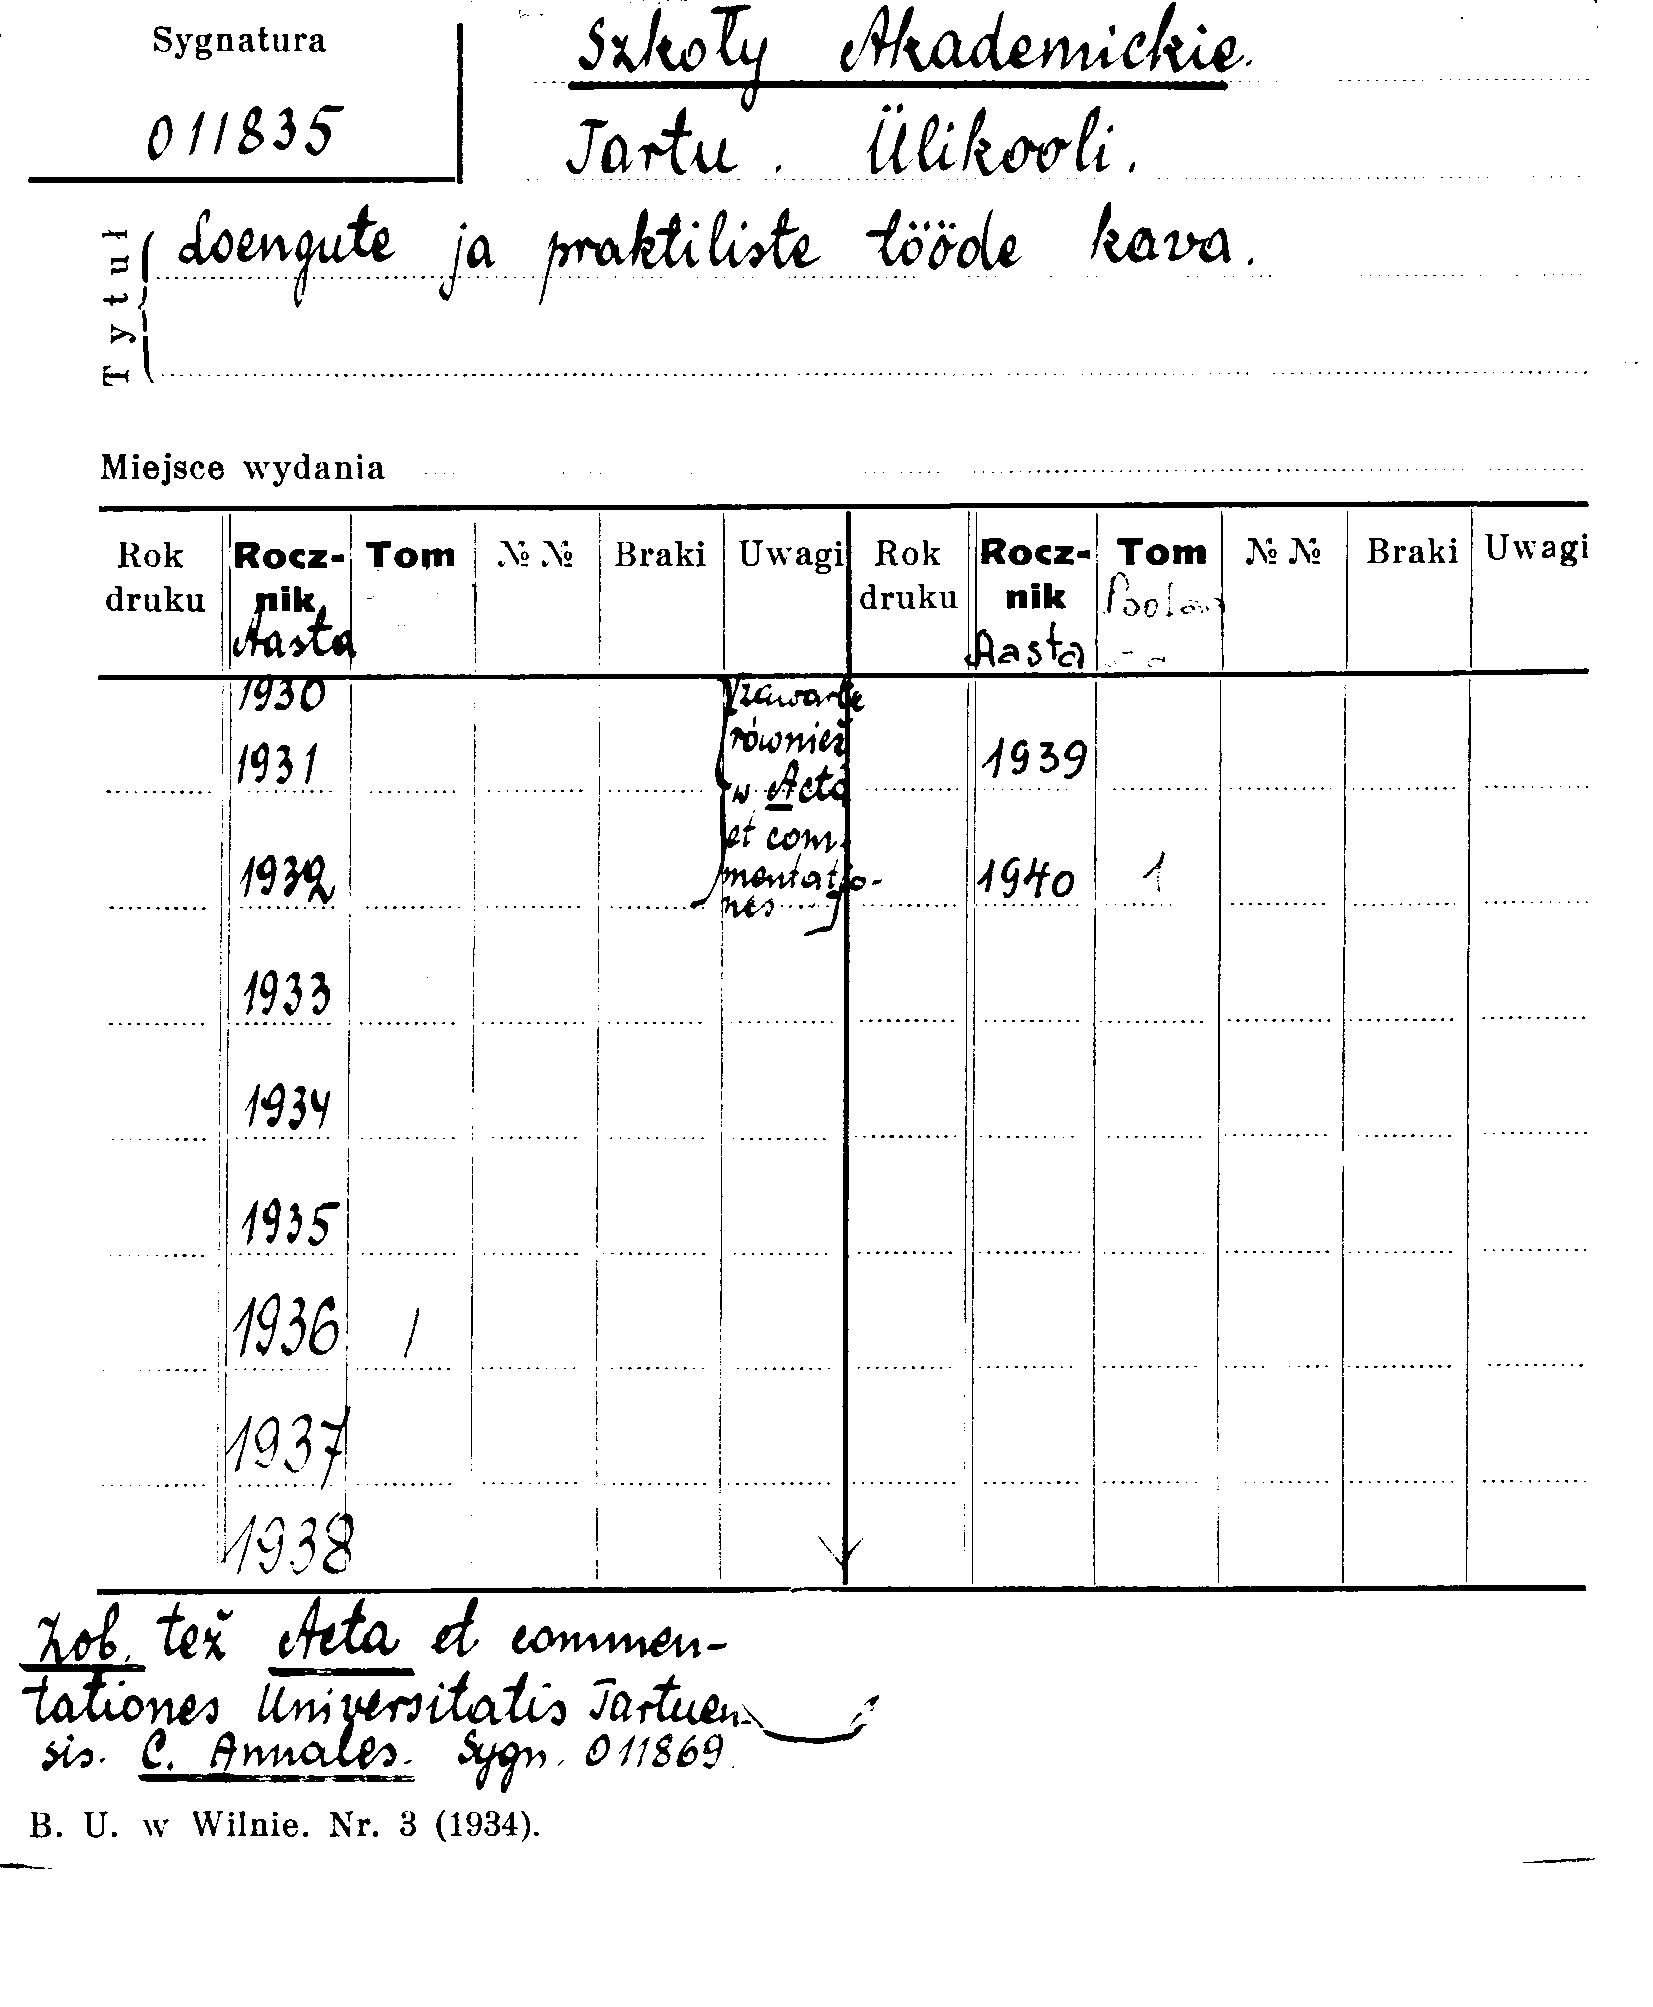 Sygnatura
011835
Szkoły Akademickie.
Tartu. Ülikooli.
Tytuł
Loengute ja praktiliste tööde kava.
Miejsce wydania
Rok druku Rocz-nik Tom №№ Braki Uwagi Rok druku Rocz-nik Tom №№ Braki Uwagi
Aasta Aasta
1930 [zawarte
1931 również 1939
w Acta
et com-
1932 mentatio- 1940 1
nes]
1933
1934
1935
1936 1
1937
1938
Zob. też Acta et commen-
tationes Universitatis Tartuen-
sis. C. Annales. Sygn. 011869.
B. U. w Wilnie. Nr. 3 (1934).